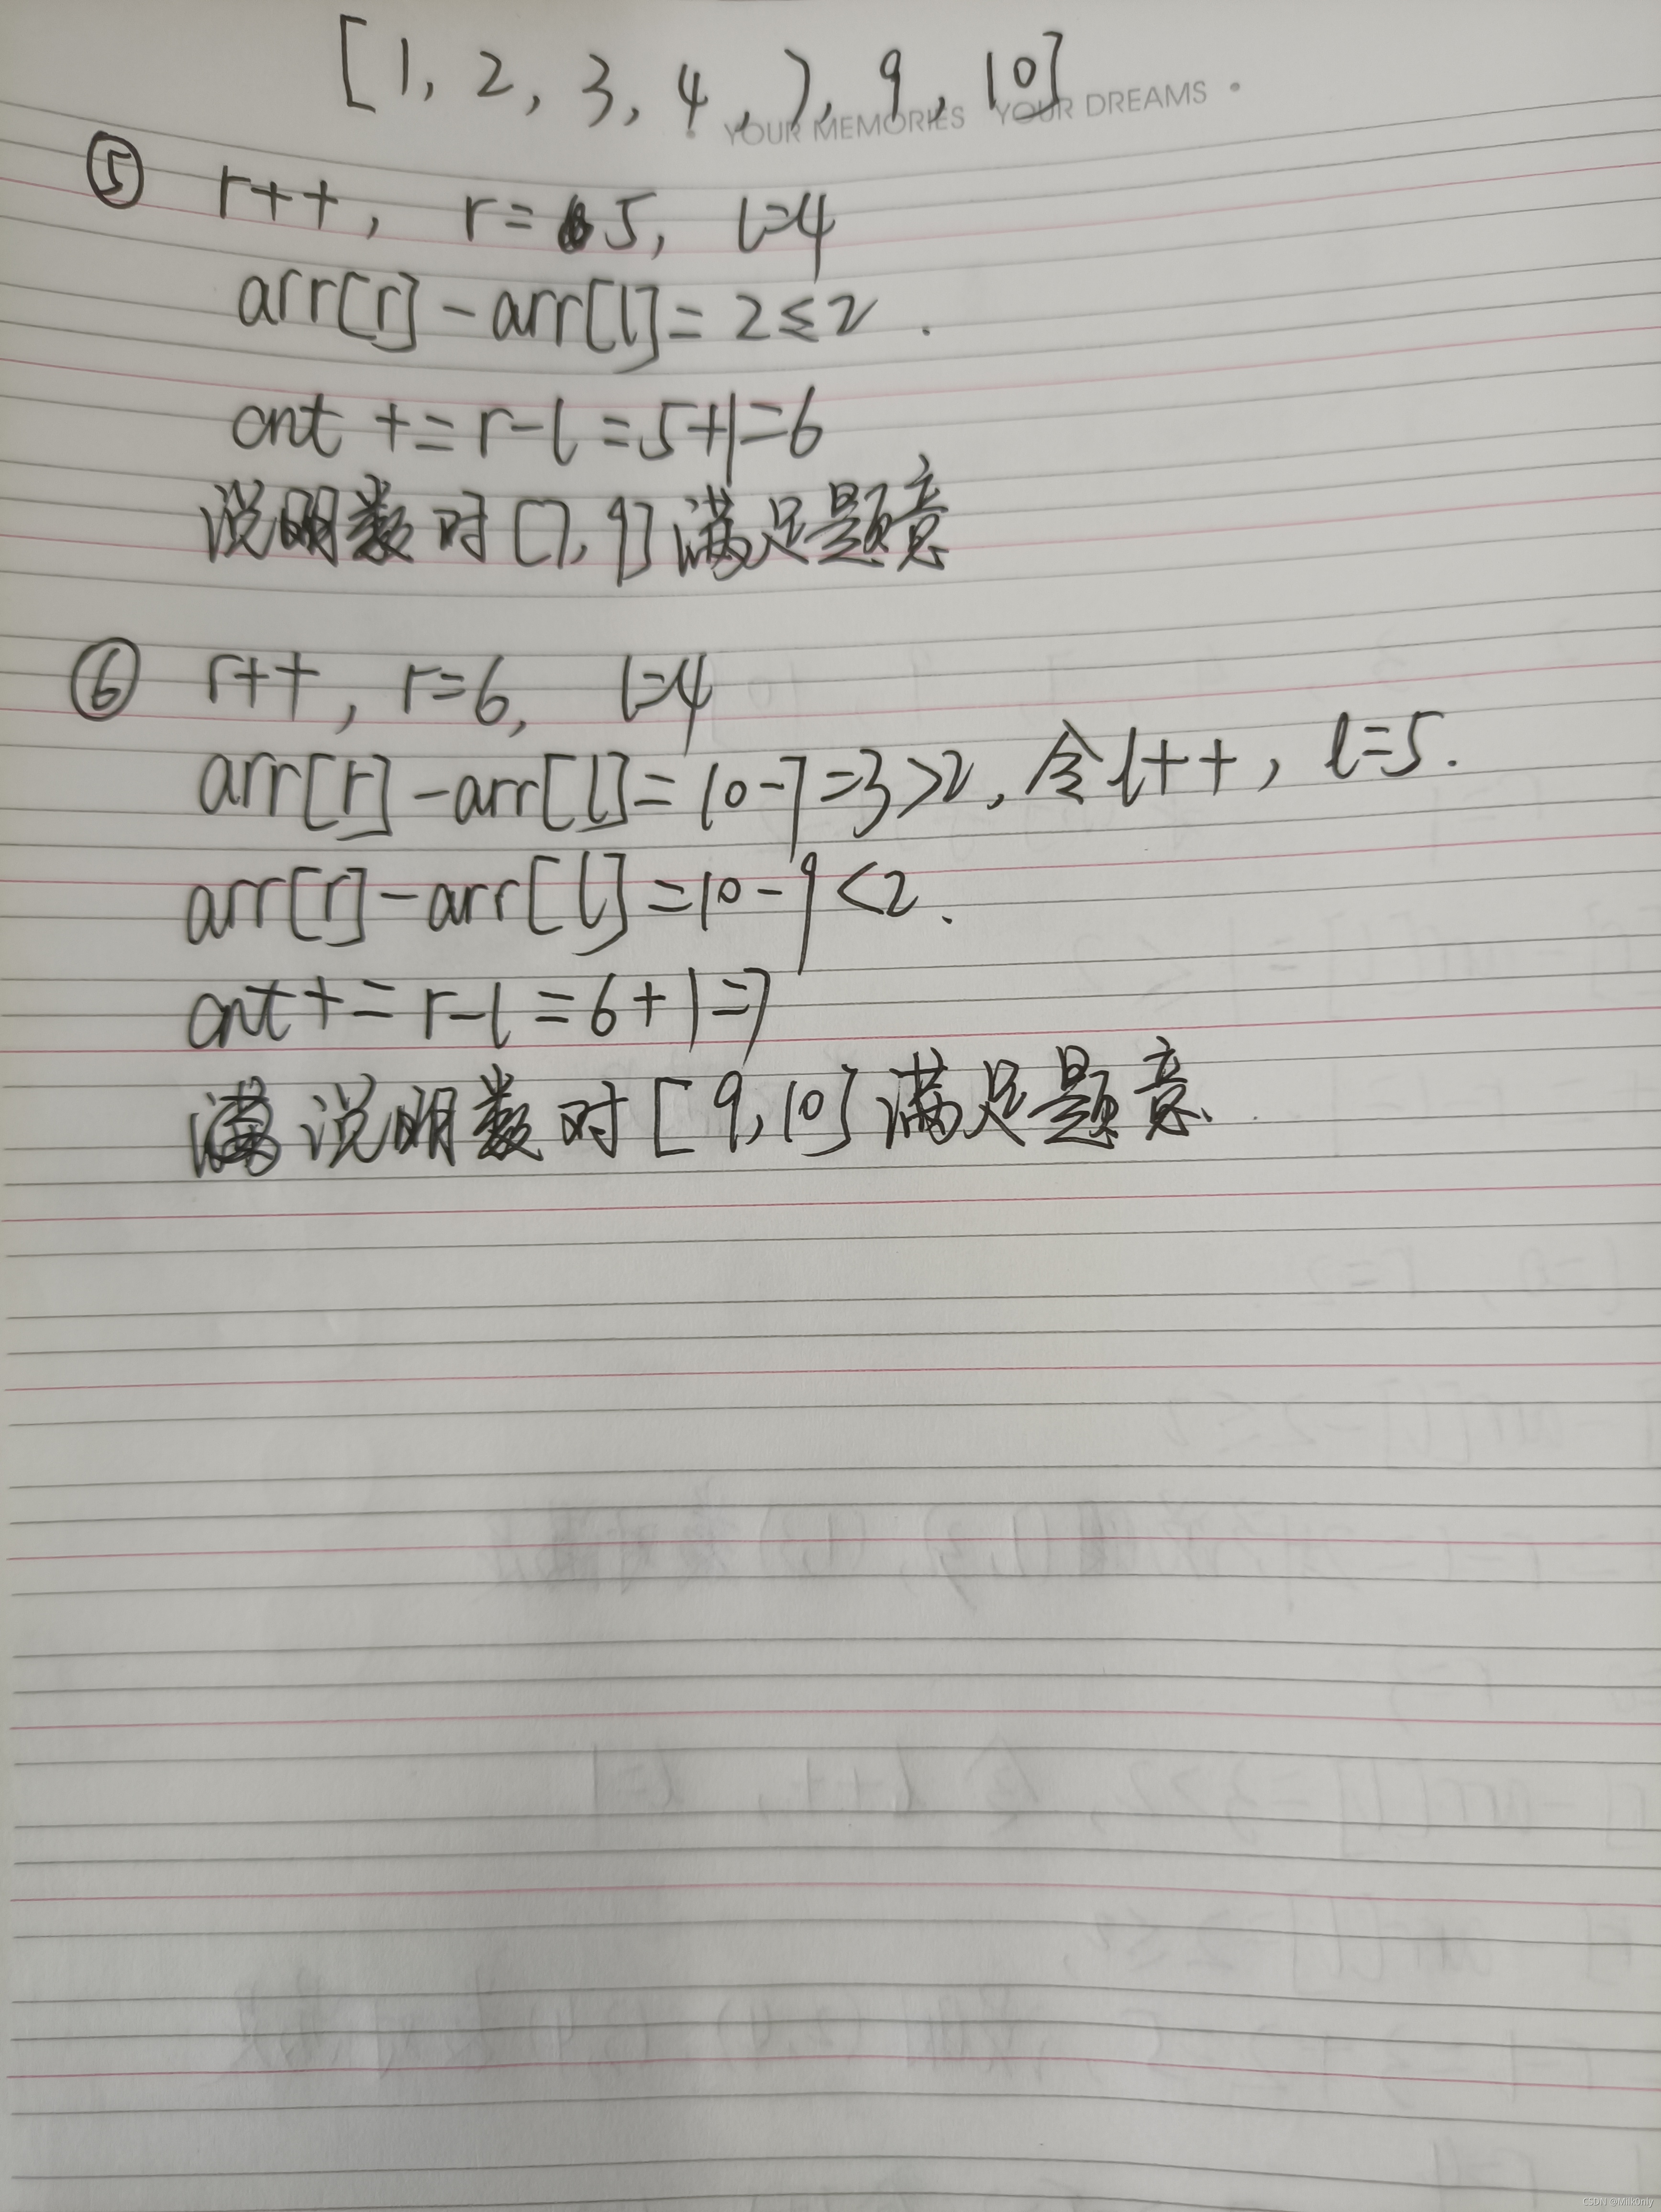 [1, 2, 3, 4, 7, 9, 10]
• YOUR MEMORIES YOUR DREAMS •
⑤ r++, r=5, l=4
arr[r]-arr[l]=2≤2.
cnt+=r-l=5+1=6
说明数对[7,9]满足题意
⑥ r++, r=6, l=4
arr[r]-arr[l]=10-7=3>2,令l++, l=5.
arr[r]-arr[l]=10-9<2.
cnt+=r-l=6+1=7
说明数对[9,10]满足题意.
CSDN @MilkOnly